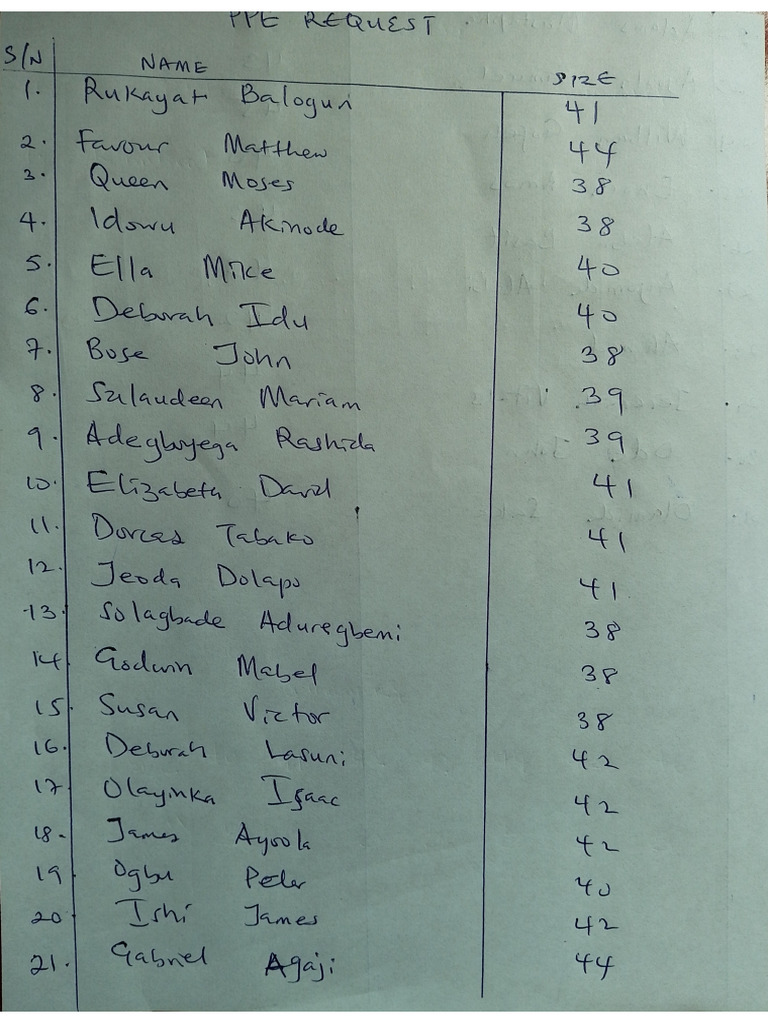 PPE REQUEST
S/N NAME SIZE
1. Rukayat Balogun 41
2. Favour Matthew 44
3. Queen Moses 38
4. Idowu Akinode 38
5. Ella Mike 40
6. Deborah Idu 40
7. Bose John 38
8. Salaudeen Mariam 39
9. Adegboyega Rashida 39
10. Elizabeth David 41
11. Dorcas Tabako 41
12. Jeoda Dolapo 41
13. Solagbade Aduregbemi 38
14 Godwin Mabel 38
15 Susan Victor 38
16. Deborah Lasuni 42
17 Olayinka Isaac 42
18. James Ayoola 42
19 Ogbu Peter 40
20 Ishi James 42
21. Gabriel Agaji 44